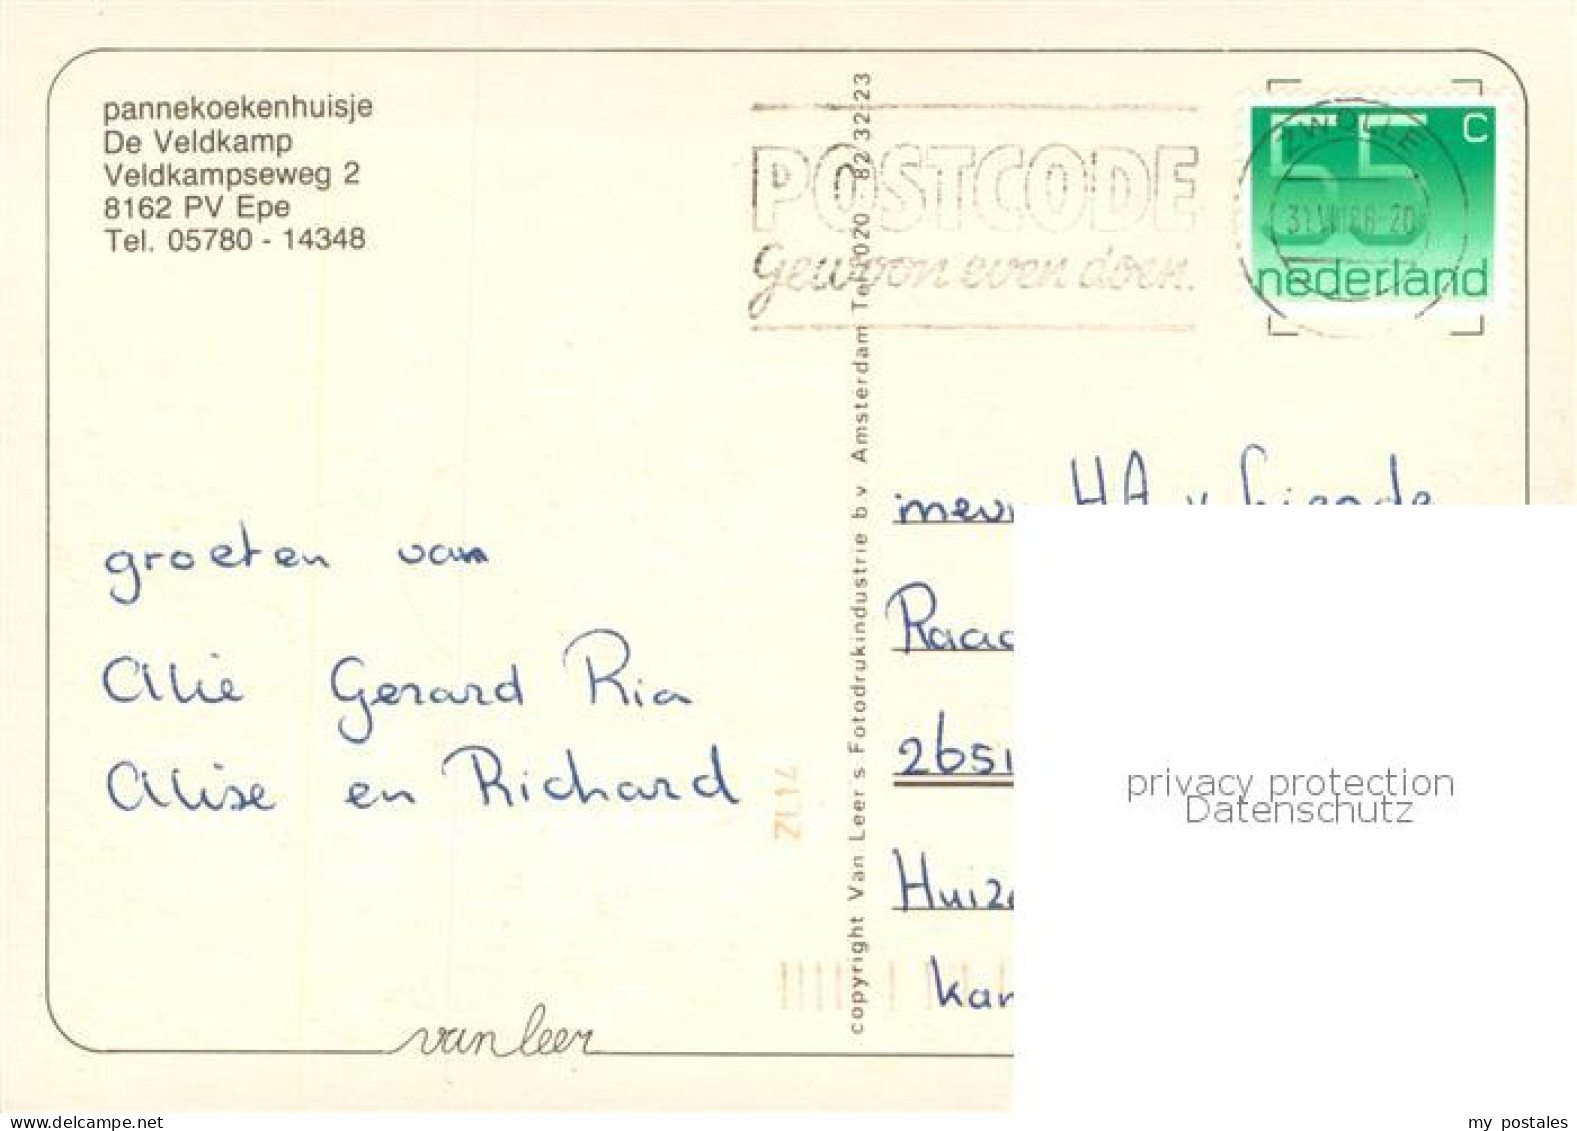 pannekoekenhuisje
De Veldkamp
Veldkampseweg 2
8162 PV Epe
Tel. 05780 - 14348
POSTCODE
gewoon even doen.
ZWOLLE
55 C
nederland
copyright Van Leer's Fotodrukindustrie b.v. Amsterdam Tel. 020 - 82 32 23
groeten van
Alie Gerard Ria
Alise en Richard
ZL14
mevr HA v
Raad
2651
Huize
kam
privacy protection
Datenschutz
van leer
www.delcampe.net
my postales